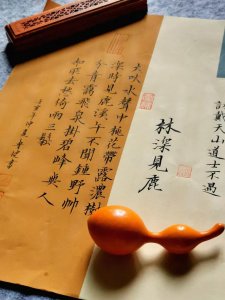 訪戴天山道士不遇
林深見鹿
犬吠水聲中桃花帶露濃樹
深時見鹿溪午不聞鐘野竹
分青靄飛泉掛碧峰無人
知所去愁倚兩三松